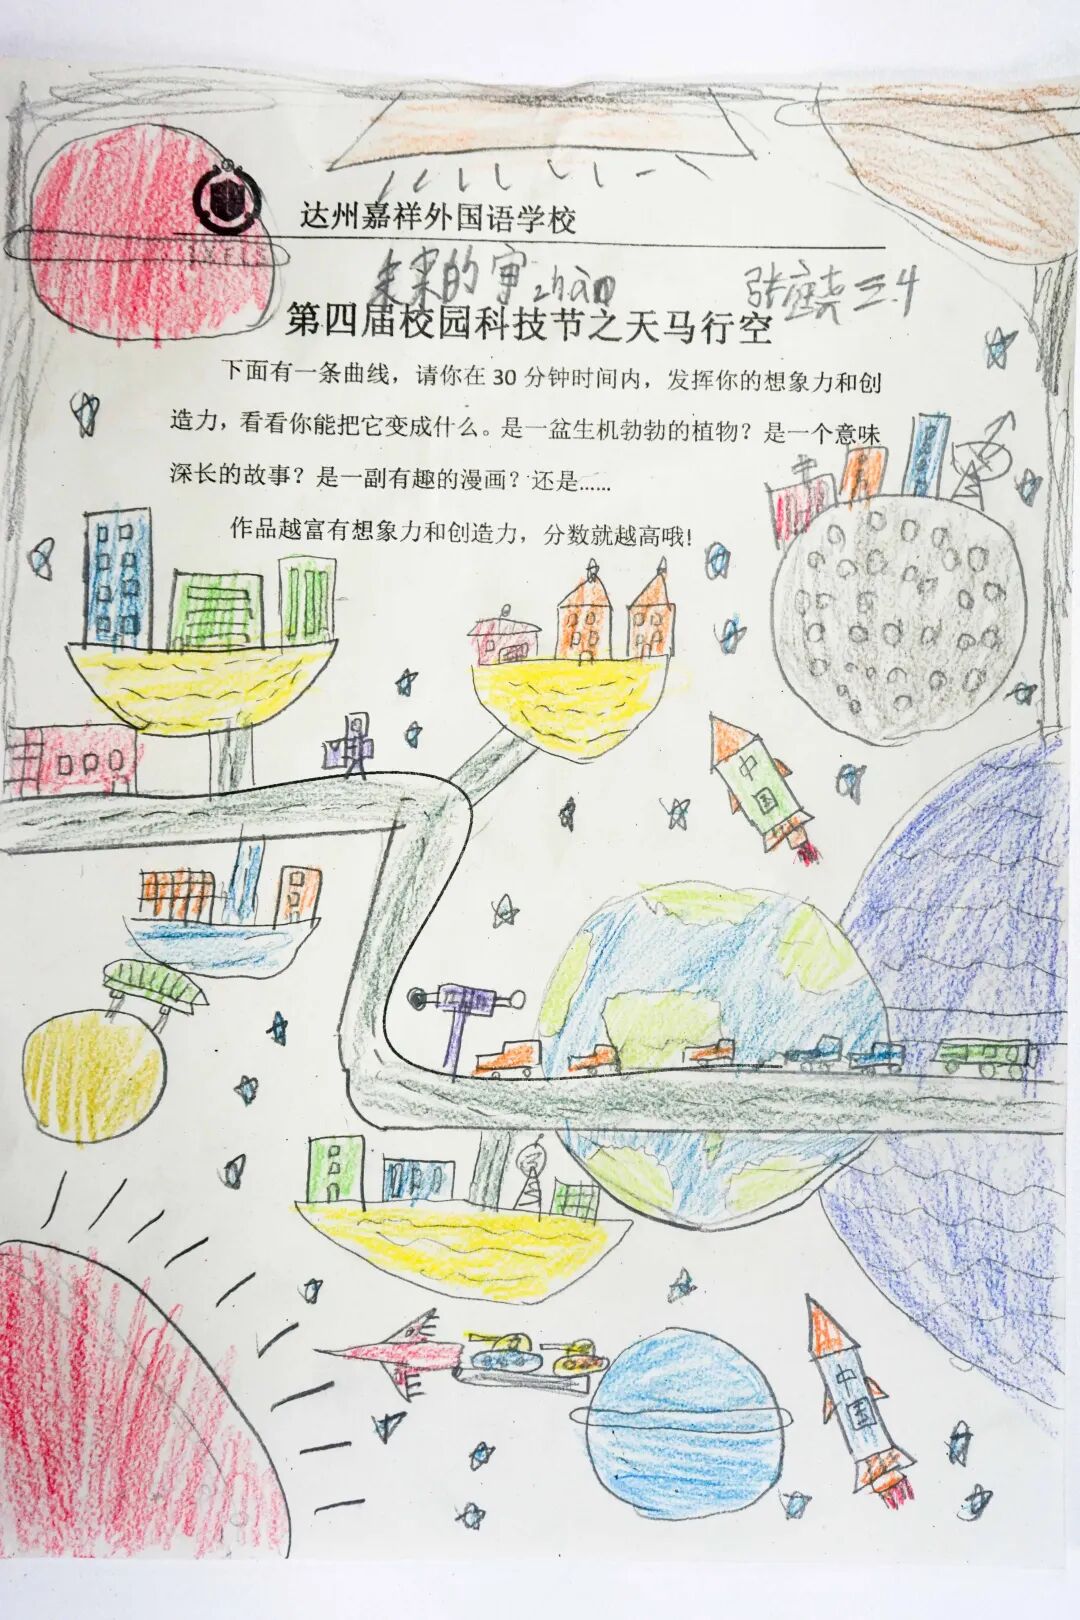 达州嘉祥外国语学校
未来的宇zhou
张庭尧 三.4
第四届校园科技节之天马行空
下面有一条曲线，请你在30分钟时间内，发挥你的想象力和创
造力，看看你能把它变成什么。是一盆生机勃勃的植物？是一个意味
深长的故事？是一副有趣的漫画？还是……
作品越富有想象力和创造力，分数就越高哦!
中国
中国